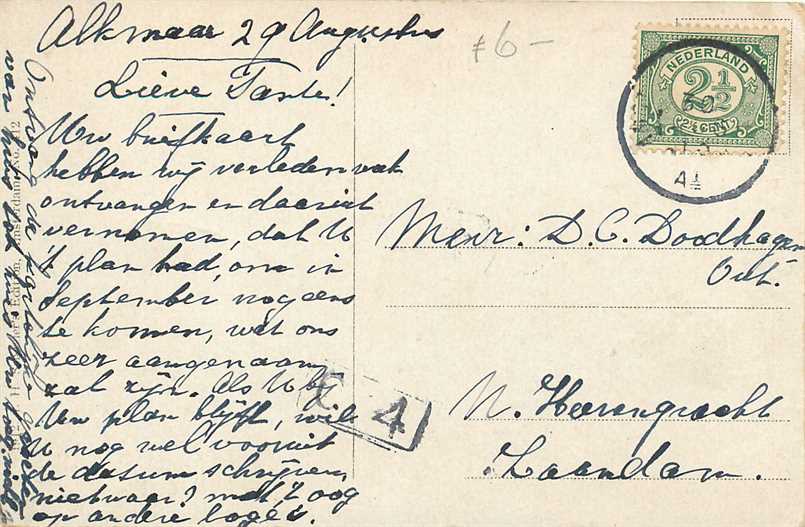 Alkmaar 29 Augustus
Lieve Tante!
Uw briefkaart
hebben wij verleden week
ontvangen en daaruit
vernomen, dat U
't plan had, om in
September nog eens
te komen, wat ons
zeer aangenaam
zal zijn. Als U bij
Uw plan blijft, wil
U nog wel vooruit
de datum schrijven,
nietwaar? met 't oog
op andere logé's.
Ontvang de hartelijke groeten
van huis tot huis Uw
ƒ6-
NEDERLAND
2½
2½ CENT
4½
4
Mevr: D. C. Doodhagen
Out.
N. Heerengracht
Zaandam.